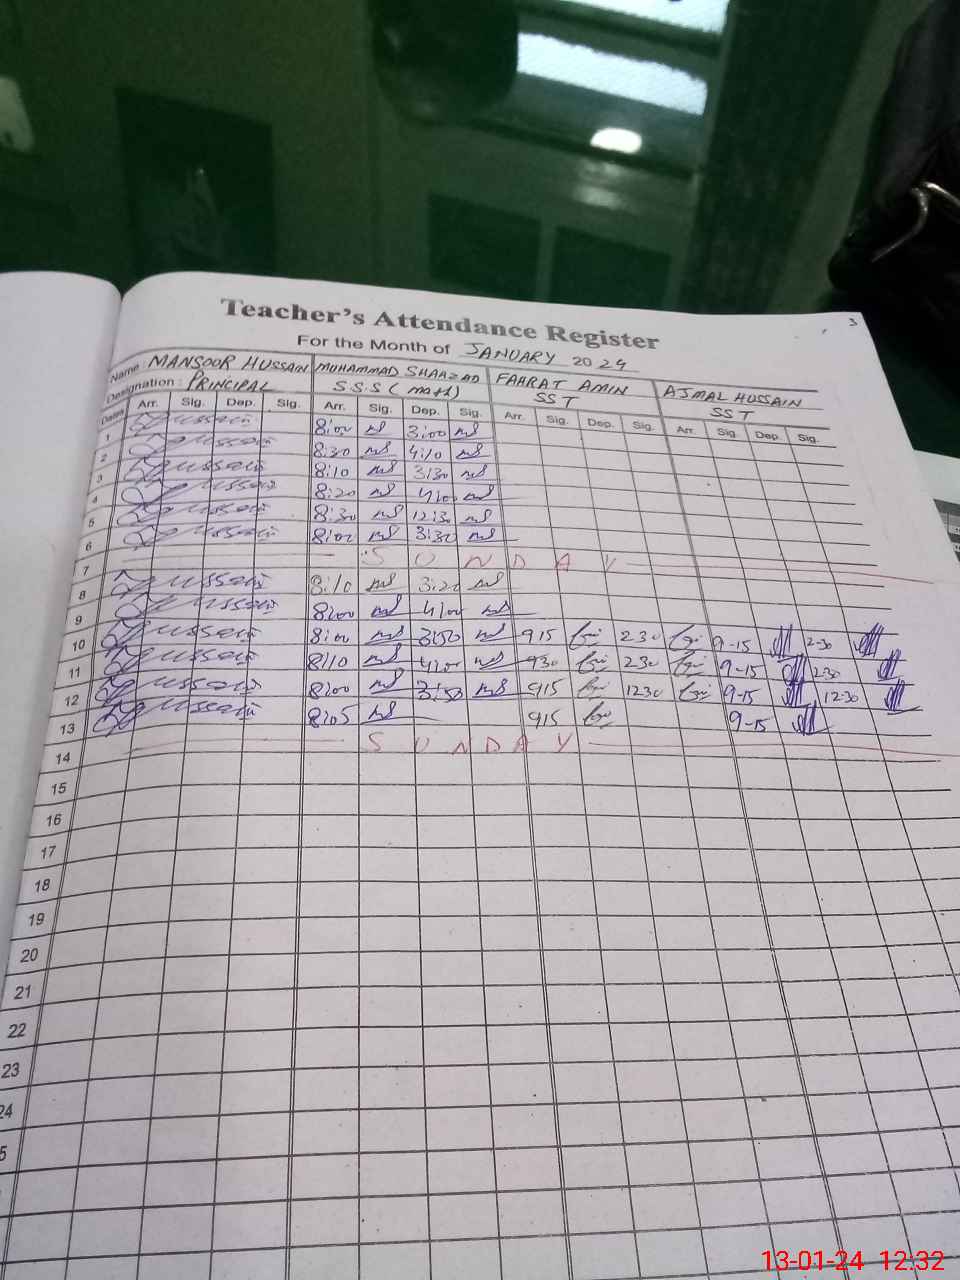 3
Teacher's Attendance Register
For the Month of JANUARY 2024
Name : MANSOOR HUSSAIN MUHAMMAD SHAHZAD FARHAT AMIN AJMAL HUSSAIN
Designation : PRINCIPAL S.S.S (math) SST SST
Dates Arr. Sig. Dep. Sig. Arr. Sig. Dep. Sig. Arr. Sig. Dep. Sig. Arr. Sig. Dep. Sig.
1 8:00 3:00
2 8:30 4:10
3 8:10 3:30
4 8:20 4:00
5 8:30 12:30
6 8:00 3:30
7 SUNDAY
8 8:10 3:20
9 8:00 4:00
10 8:00 3:50 915 230 9-15 2-30
11 8:10 4:00 930 230 9-15 2-30
12 8:00 3:50 915 1230 9-15 12-30
13 8:05 915 9-15
14 SUNDAY
15
16
17
18
19
20
21
22
23
24
5
13-01-24 12:32